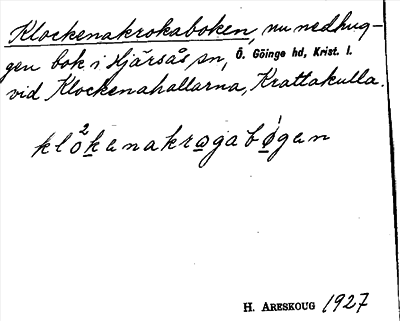 Klockenakrokaboken, nu nedhug-
gen bok i Hjärsås sn, Ö. Göinge hd, Krist. l.
vid Klockenahallarna, Krattakulla.
klo²kenakrogabǿgen
H. ARESKOUG 1927